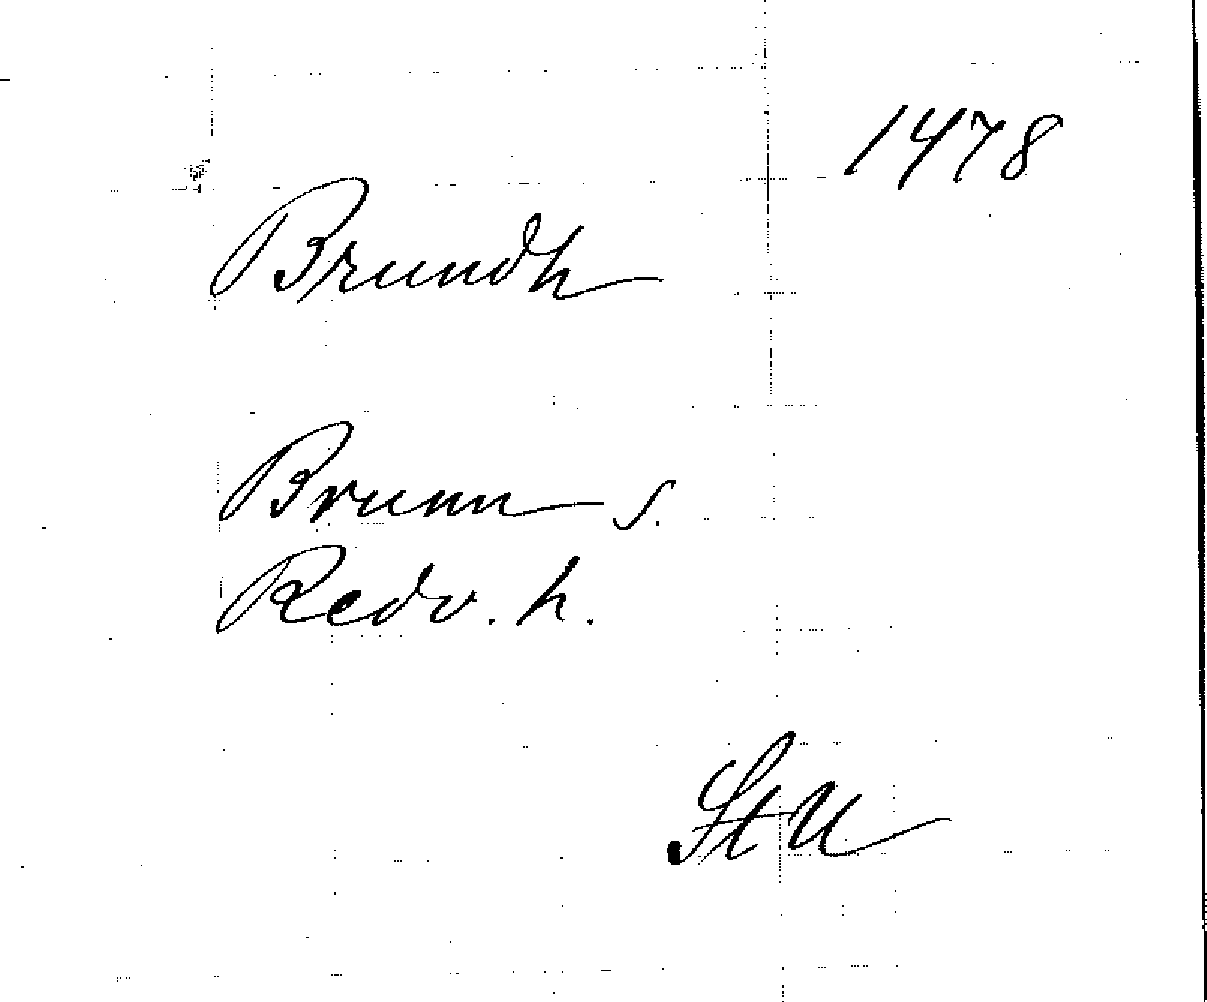 1478
Brundh
Brunn s.
Redv. h.
St U